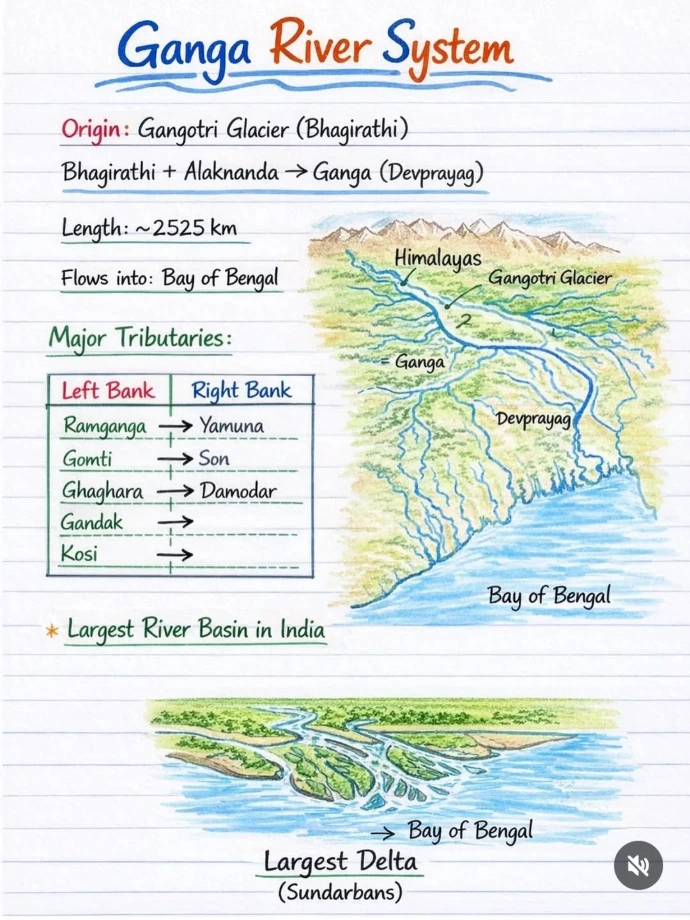 Ganga River System
Origin: Gangotri Glacier (Bhagirathi)
Bhagirathi + Alaknanda → Ganga (Devprayag)
Length: ~2525 km
Flows into: Bay of Bengal
Major Tributaries:
Left Bank Right Bank
Ramganga → Yamuna
Gomti → Son
Ghaghara → Damodar
Gandak →
Kosi →
Himalayas
Gangotri Glacier
= Ganga
Devprayag
Bay of Bengal
* Largest River Basin in India
→ Bay of Bengal
Largest Delta
(Sundarbans)